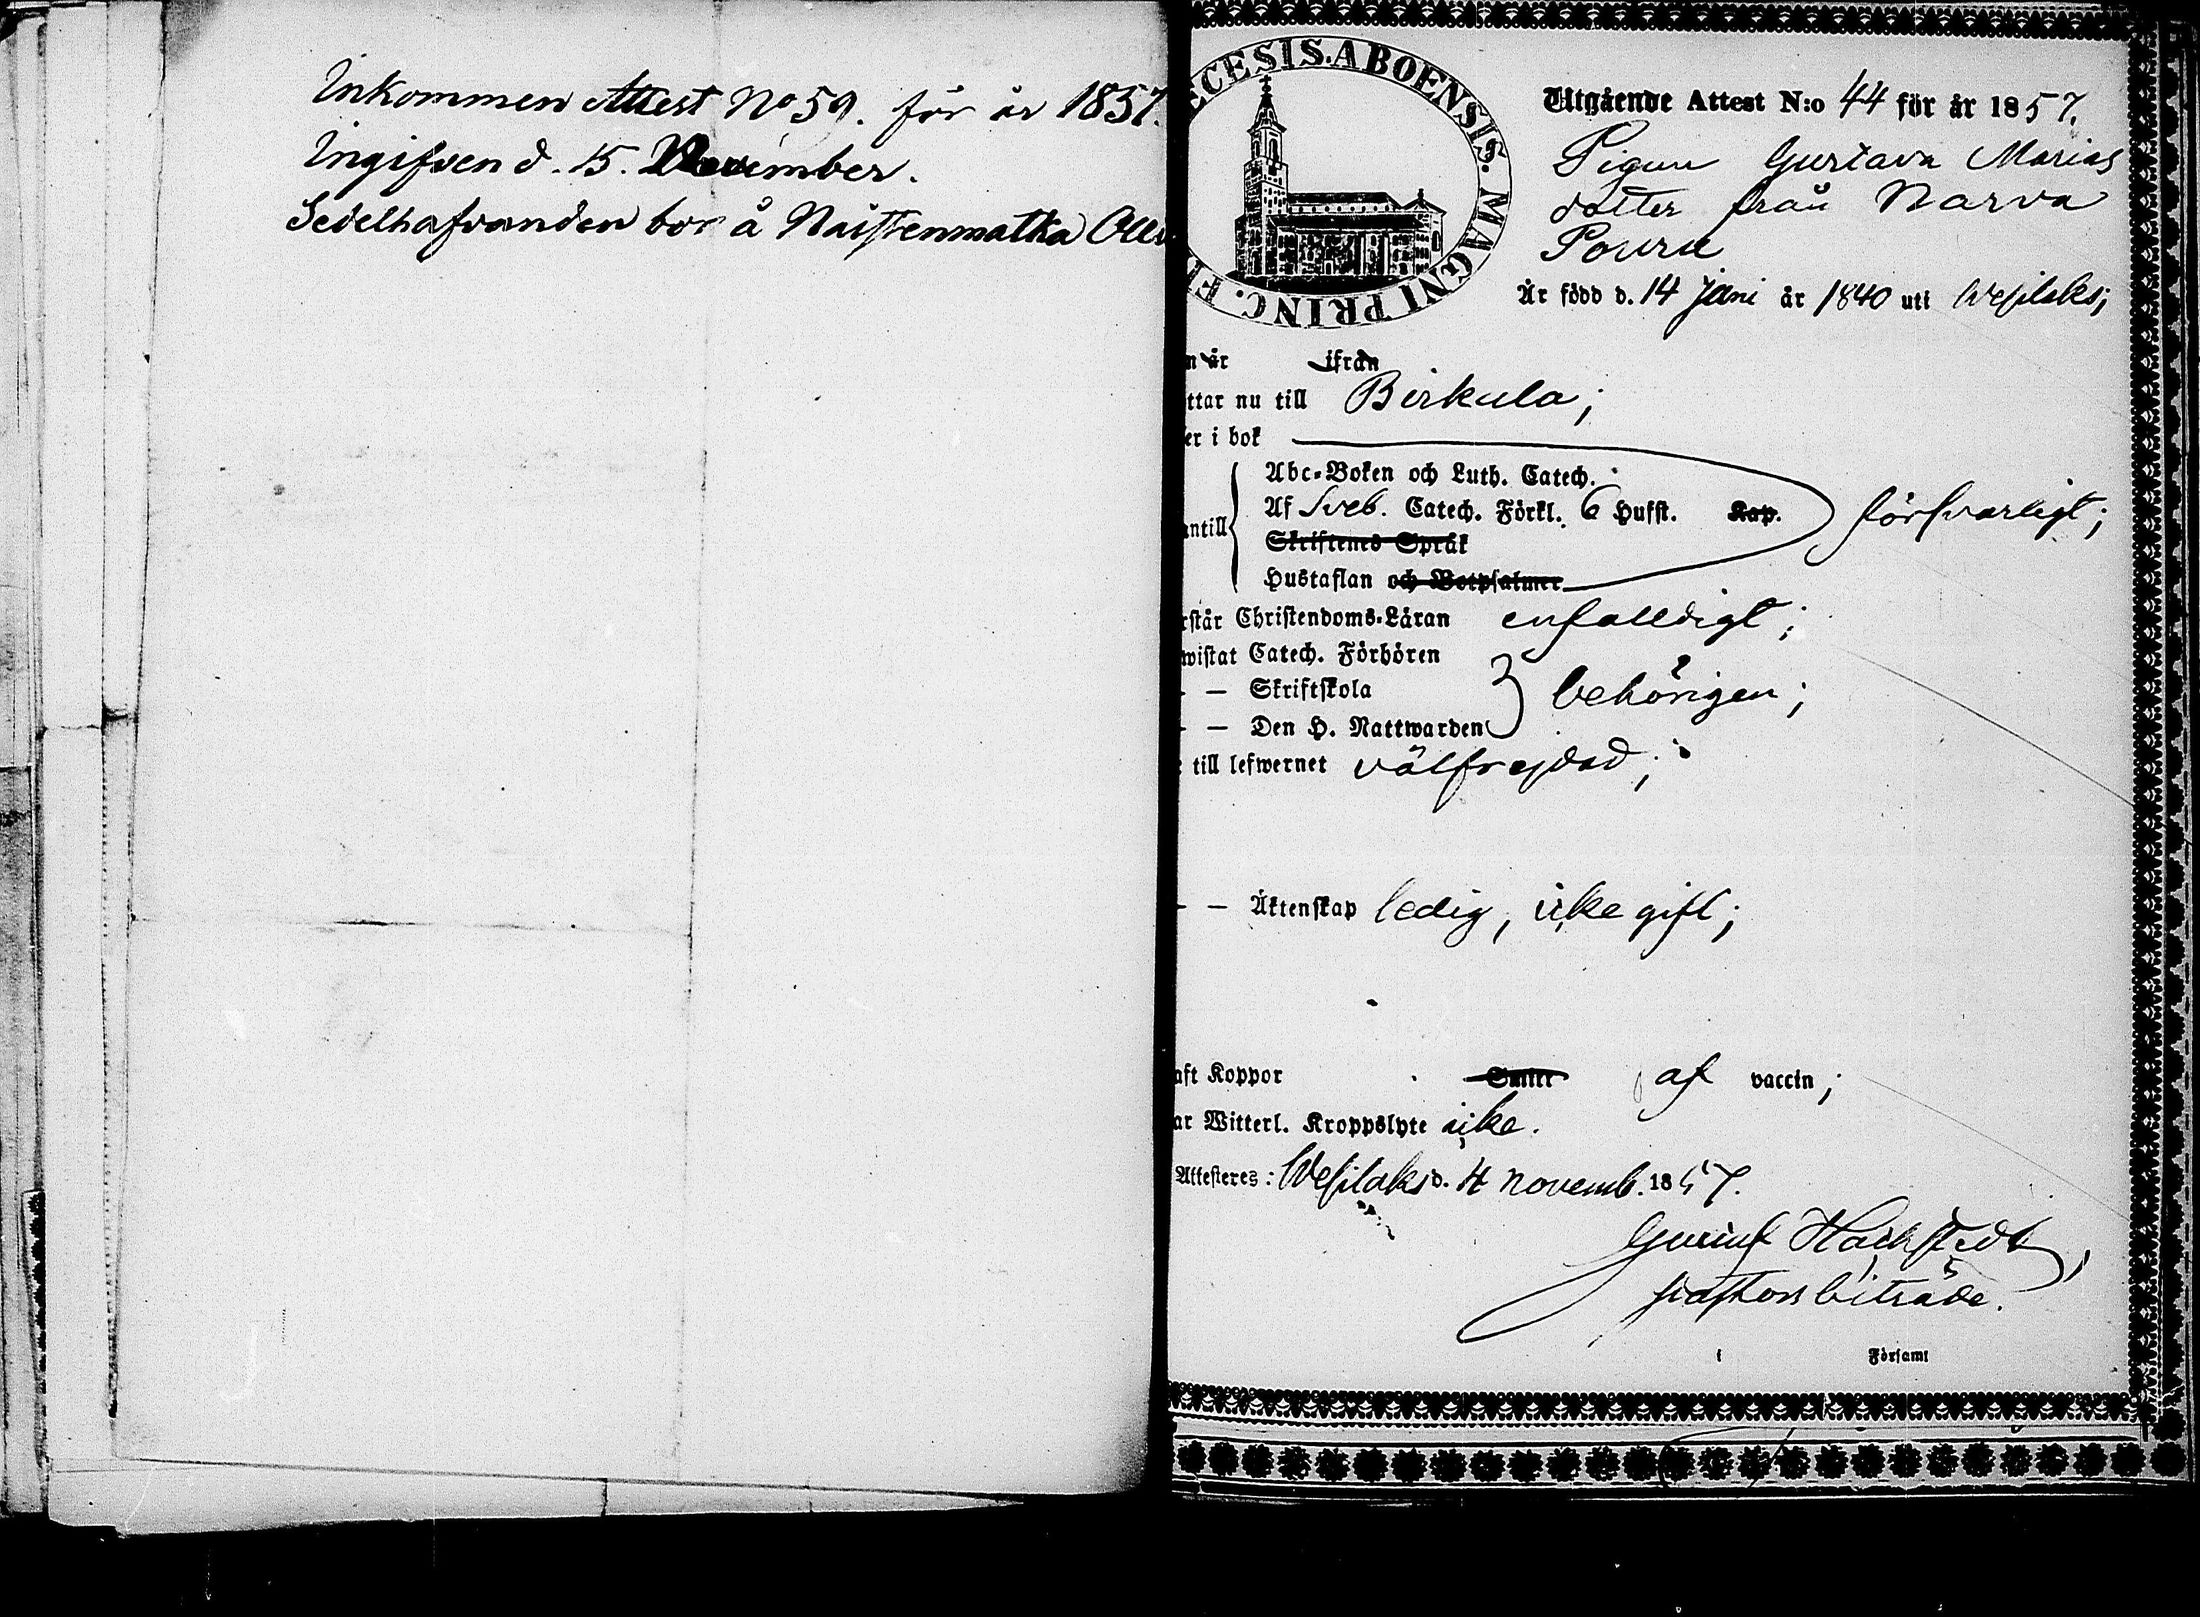 Inkommen Attest No 59. för år 1857.
Ingifven d. 15. November.
Sedelhafvanden bor å Naistenmatka Olli
ECESIS. ABOENSIS. MAGNI PRINC. FI
Utgående Attest N:o 44 för år 1857.
Pigan Gustava Marias
dotter från Narva
Pouru
Är född d. 14 Juni år 1840 uti Wesilaks;
n år ifrån
ttar nu till Birkala;
er i bok
Abc-Boken och Luth. Catech.
antill Af Sveb. Catech. Förkl. 6 Hufst. Kap. försvarligt;
Skriftenes Språk
Hustaflan och Botpsalmer
rstår Christendoms-Läran enfalldigt;
wistat Catech. Förhören
- — Skriftskola behörigen;
- — Den H. Nattwarden
till lefwernet välfrejdad;
- — Äktenskap ledig, icke gift;
aft Koppor Smitt af vaccin;
ar Witterl. Kroppslyte icke.
Attesteres: Wesilaks d. 4 Novemb. 1857.
Gustaf Hackstedt,
pastorsbiträde.
i Församl